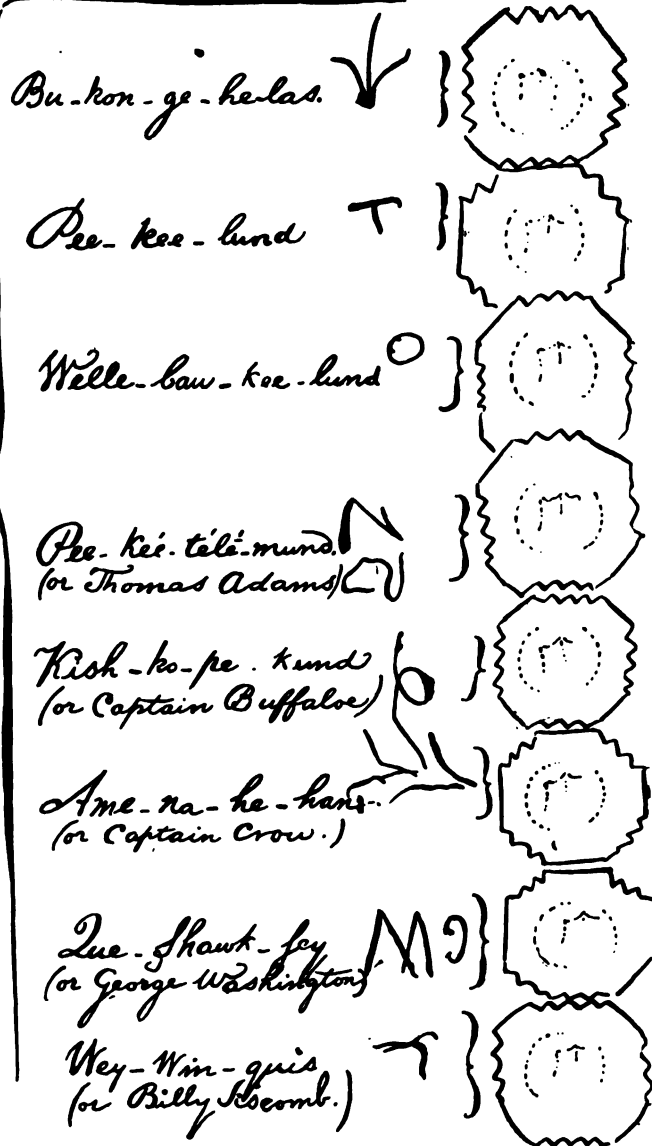 Bu-kon-ge-helas.
Pee-kee-lund
Welle-baw-kee-lund
Pee-keé-télé-mund.
(or Thomas Adams)
Kish-ko-pe.kund
(or Captain Buffaloe)
Ame-na-he-han..
(or Captain Crow.)
Que-Shawk-sey
(or George Washington)
Wey-Win-quis
(or Billy Siscomb.)